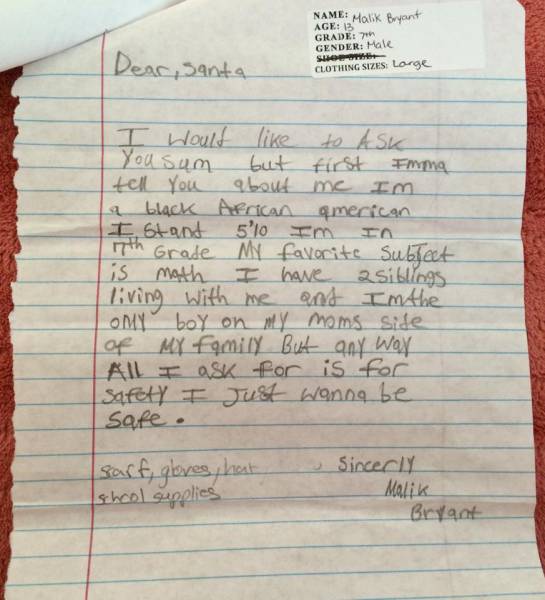 NAME: Malik Bryant
AGE: 13
GRADE: 7th
GENDER: Male
SHOE SIZE:
CLOTHING SIZES: Large
Dear, Santa
I Would like to ASK
You sum but first Imma
tell You about me Im
a black African american
I Stand 5'10 Im In
7th Grade MY favorite Subject
is math I have 2 siblings
living with me and Im the
only boy on MY moms side
of MY family But any way
All I ask for is for
Safety I Just wanna be
Safe.
scarf, gloves, hat
school supplies
Sincerly
Malik
Bryant